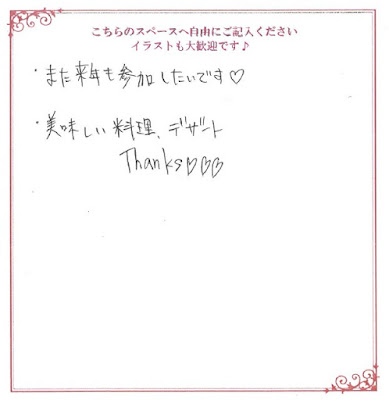 こちらのスペースへ自由にご記入ください
イラストも大歓迎です♪
・また来年も参加したいです♡
・美味しい料理、デザート
Thanks♡♡♡